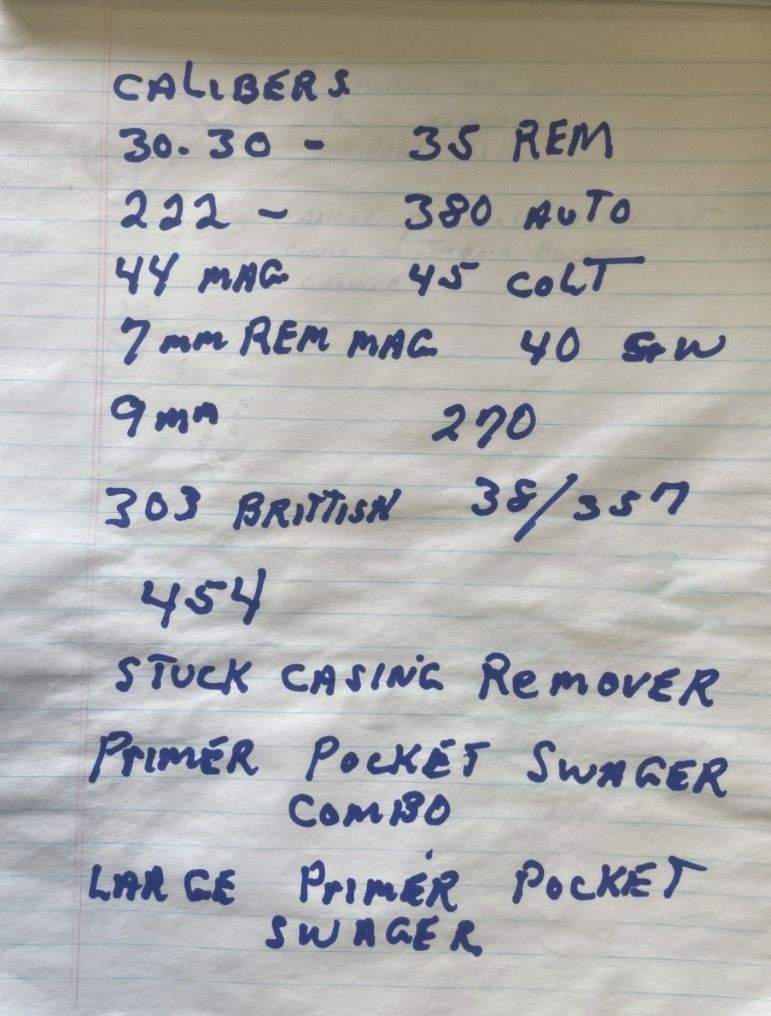 CALIBERS
30.30 - 35 REM
222 - 380 AUTO
44 MAG 45 COLT
7mm REM MAG 40 S+W
9mm 270
303 BRITTISH 38/357
454
STUCK CASING REMOVER
PRIMER POCKET SWAGER
COMBO
LARGE PRIMER POCKET
SWAGER